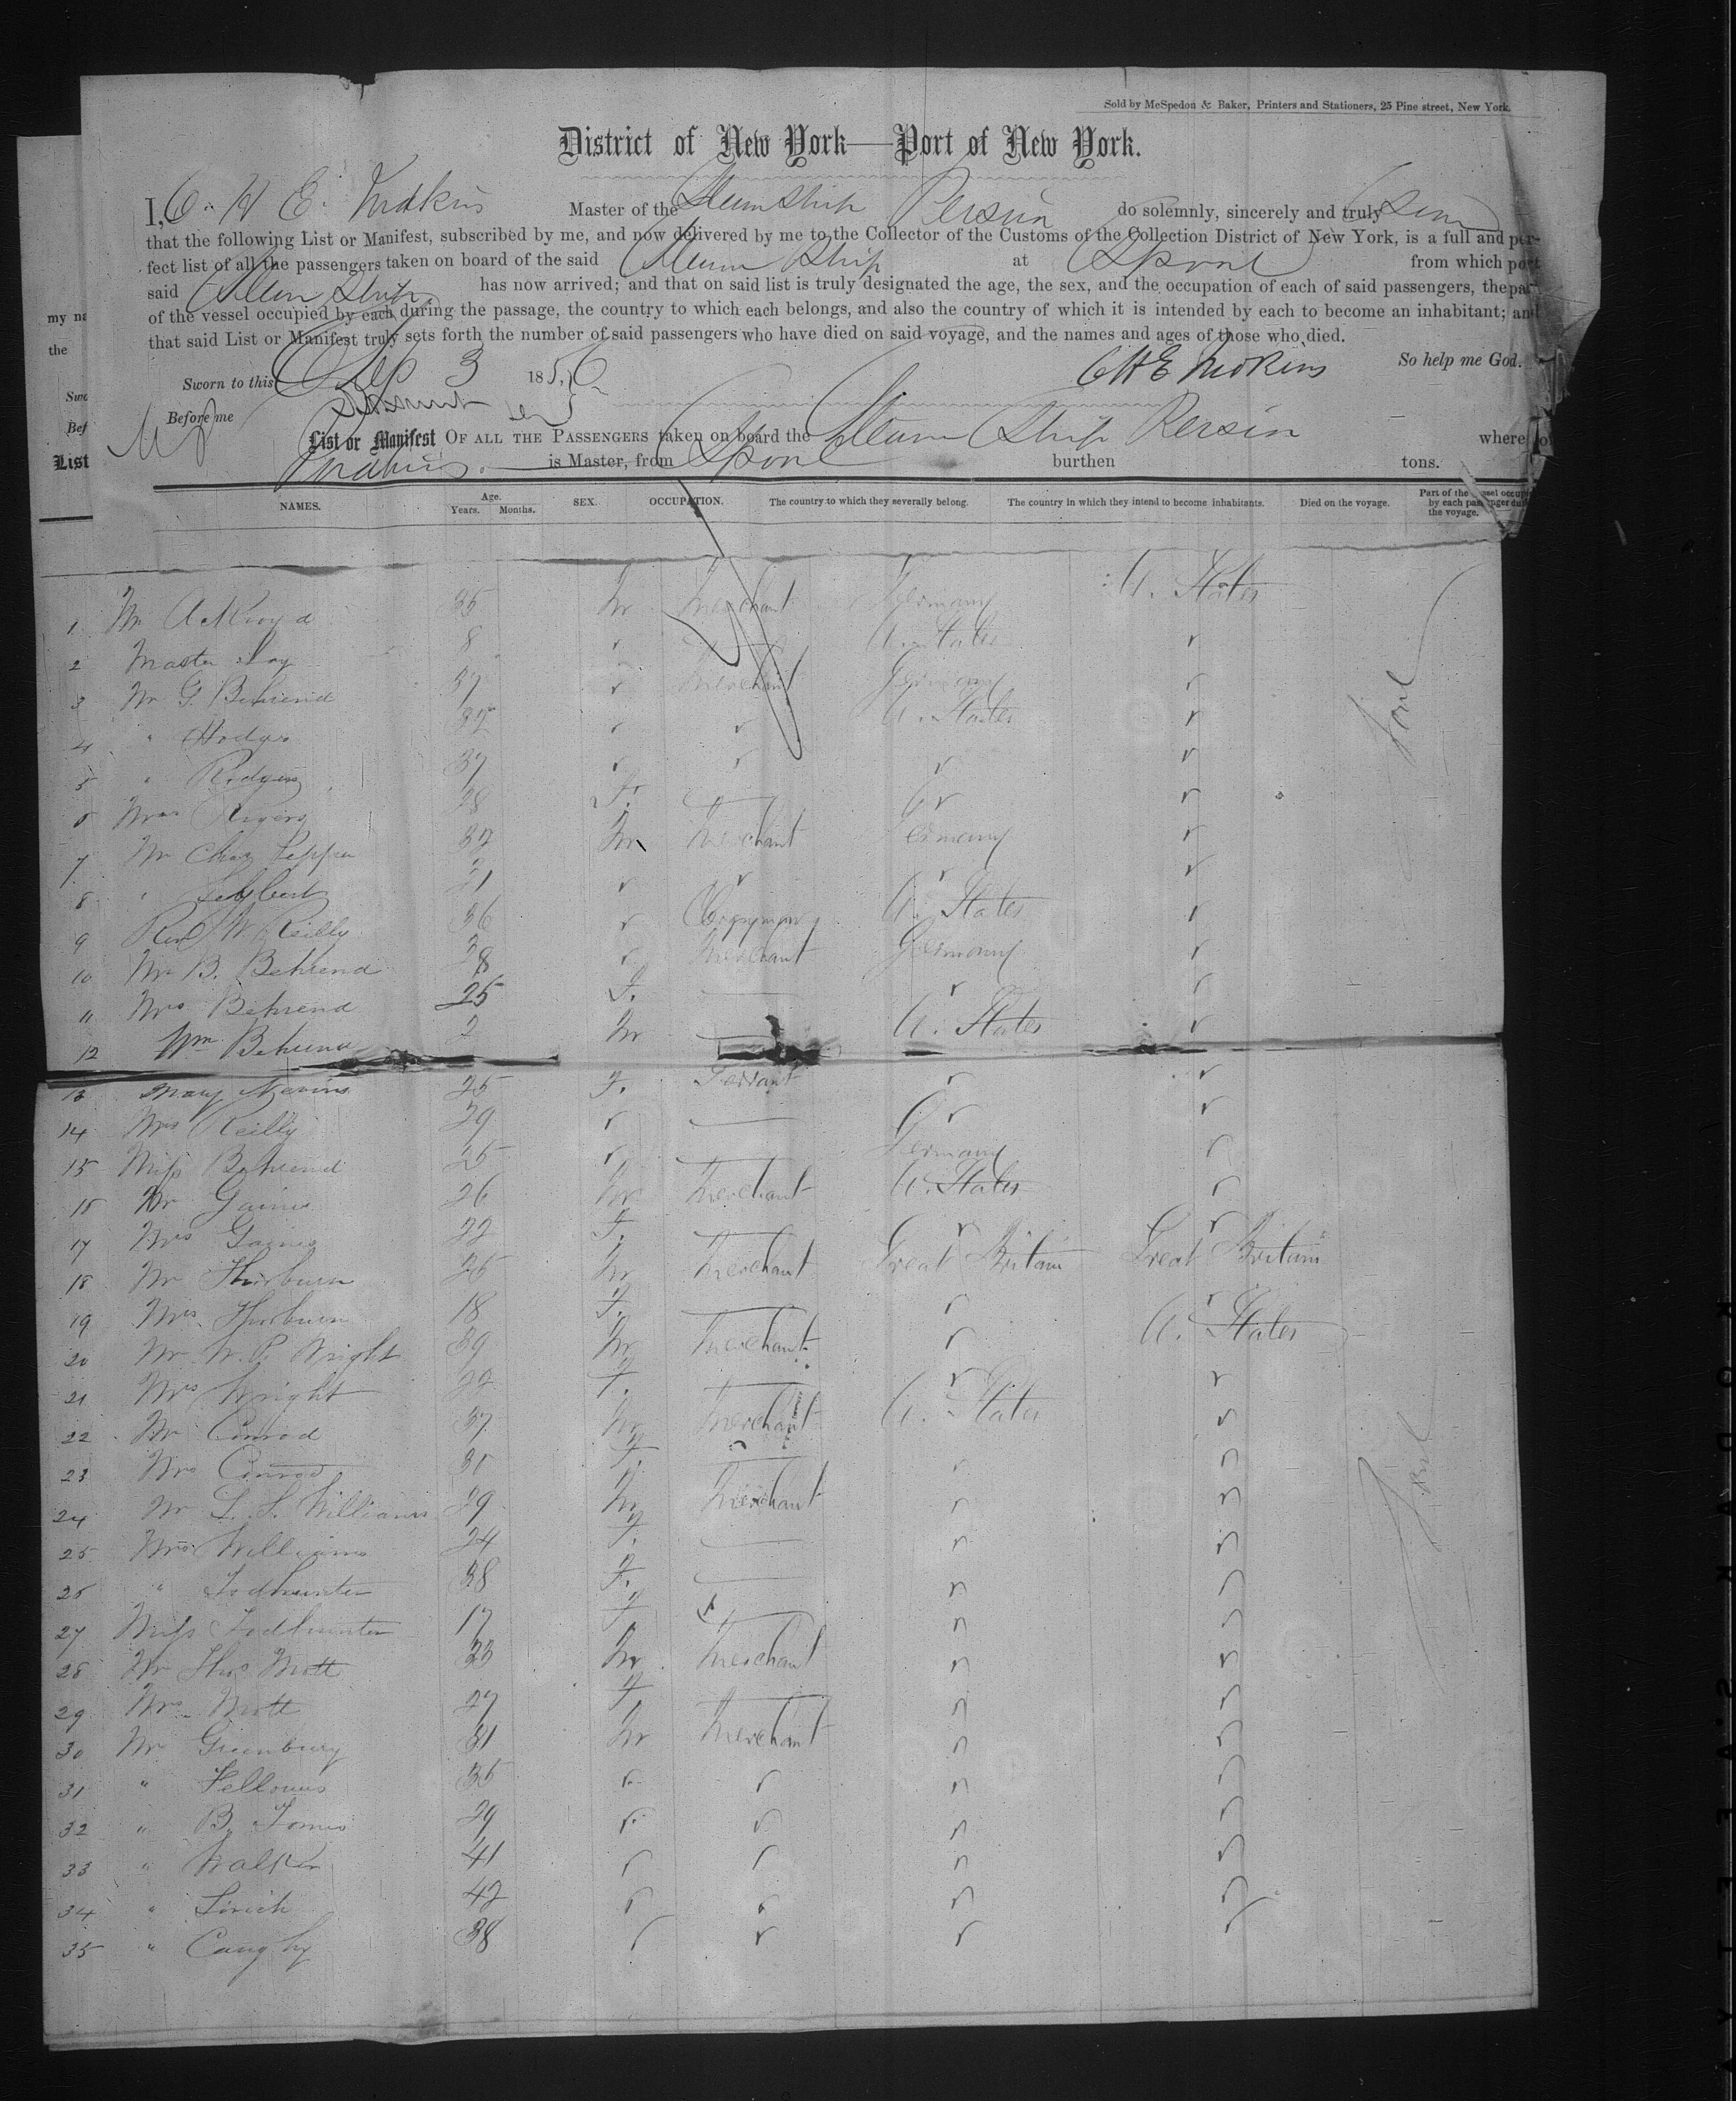 Sold by McSpedon & Baker, Printers and Stationers, 25 Pine street, New York.
District of New York—Port of New York.
I, C. H. E. Judkins Master of the Steam Ship Persia do solemnly, sincerely and truly
that the following List or Manifest, subscribed by me, and now delivered by me to the Collector of the Customs of the Collection District of New York, is a full and per-
fect list of all the passengers taken on board of the said Steam Ship at Lpool from which port
said Steam Ship has now arrived; and that on said list is truly designated the age, the sex, and the occupation of each of said passengers, the par
of the vessel occupied by each during the passage, the country to which each belongs, and also the country of which it is intended by each to become an inhabitant; and
that said List or Manifest truly sets forth the number of said passengers who have died on said voyage, and the names and ages of those who died.
So help me God.
Sworn to this Sep 3 1856 CHE Judkins
Before me
List or Manifest OF ALL THE PASSENGERS taken on board the Steam Ship Persia where
Judkins is Master, from Lpool burthen tons.
my na
the
Swo
Bef
List
NAMES. Age. Years. Months. SEX. OCCUPATION. The country to which they severally belong. The country in which they intend to become inhabitants. Died on the voyage. Part of the vessel occupied by each passenger during the voyage.
1 Mr Ackroyd 35 M Merchant Germany U. States
2 Master 8 " — U. States "
3 Mr G. Behrend 37 " Merchant Germany "
4 " Hodges 32 " " U. States "
5 " Rodgers 37 " " " "
6 Mrs Rogers 28 F. — " "
7 Mr Chas 32 M Merchant Germany "
8 " 21 " " " "
9 Rev W. Reilly 36 " Clergyman U. States "
10 Mr B. Behrend 38 " Merchant Germany "
11 Mrs Behrend 25 F. — " "
12 Wm Behrend 2 M — U. States "
13 Mary Nevins 25 F. Servant " "
14 Mrs Reilly 29 " — " "
15 Miss Behrend 25 " — Germany "
16 Mr Gaines 26 M Merchant U. States "
17 Mrs Gaines 22 F. — " "
18 Mr Thorburn 26 M Merchant Great Britain Great Britain
19 Mrs Thorburn 18 F. — " "
20 Mr W. P. Wright 39 M Merchant " U. States
21 Mrs Wright 22 F. — " "
22 Mr Conrod 37 M Merchant U. States "
23 Mrs Conrod 30 F. — " "
24 Mr L. S. Williams 29 M Merchant " "
25 Mrs Williams 24 F. — " "
26 " Todhunter 38 F. — " "
27 Miss Todhunter 17 F — " "
28 Mr Thos Mott 33 M Merchant " "
29 Mrs Mott 27 F — " "
30 Mr Greenbury 31 M Merchant " "
31 " Fellows 35 " " " "
32 " B. Tomes 29 " " " "
33 " Walker 41 " " " "
34 " 42 " " " "
35 " Caughy 38 " " " "